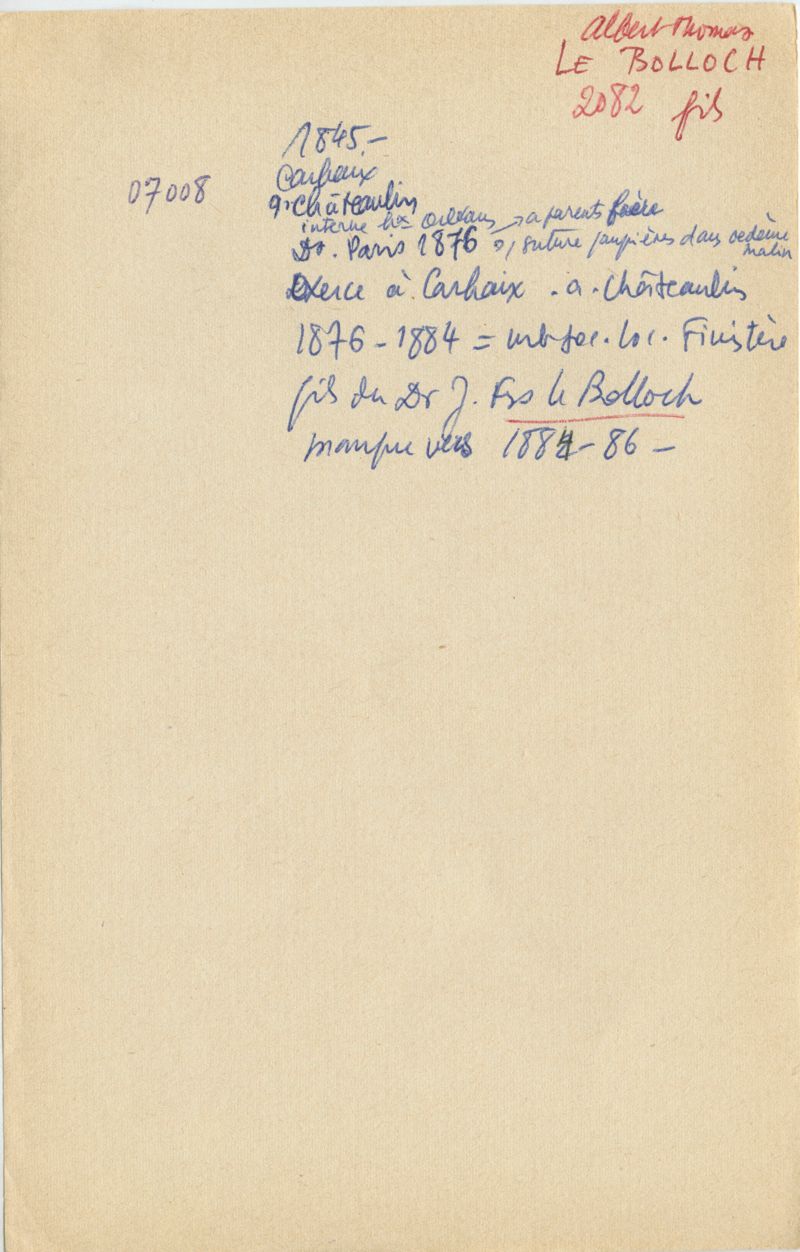 Albert Thomas
LE BOLLOCH
2082 fils
1845.-
07008
Carhaix
a. Châteaulin
interne hx orléans → a parents frère
Dr. Paris 1876 suture paupières dans oedème malin
Exerce à Carhaix . a . Châteaulin
1876 - 1884 = mb soc. loc. Finistère
fils du Dr J. Frs le Bolloch
manque vers 1884 - 86 -